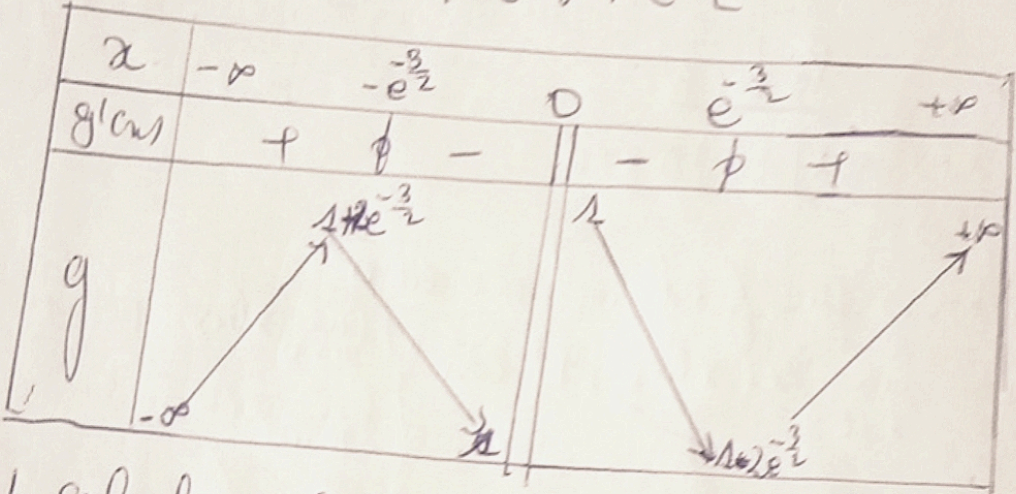 x -∞ -e^{-3/2} 0 e^{-3/2} +∞
g'(x) + 0 - || - 0 + 
g -∞ 1+2e^{-3/2} 1 || 1 1-2e^{-3/2} +∞